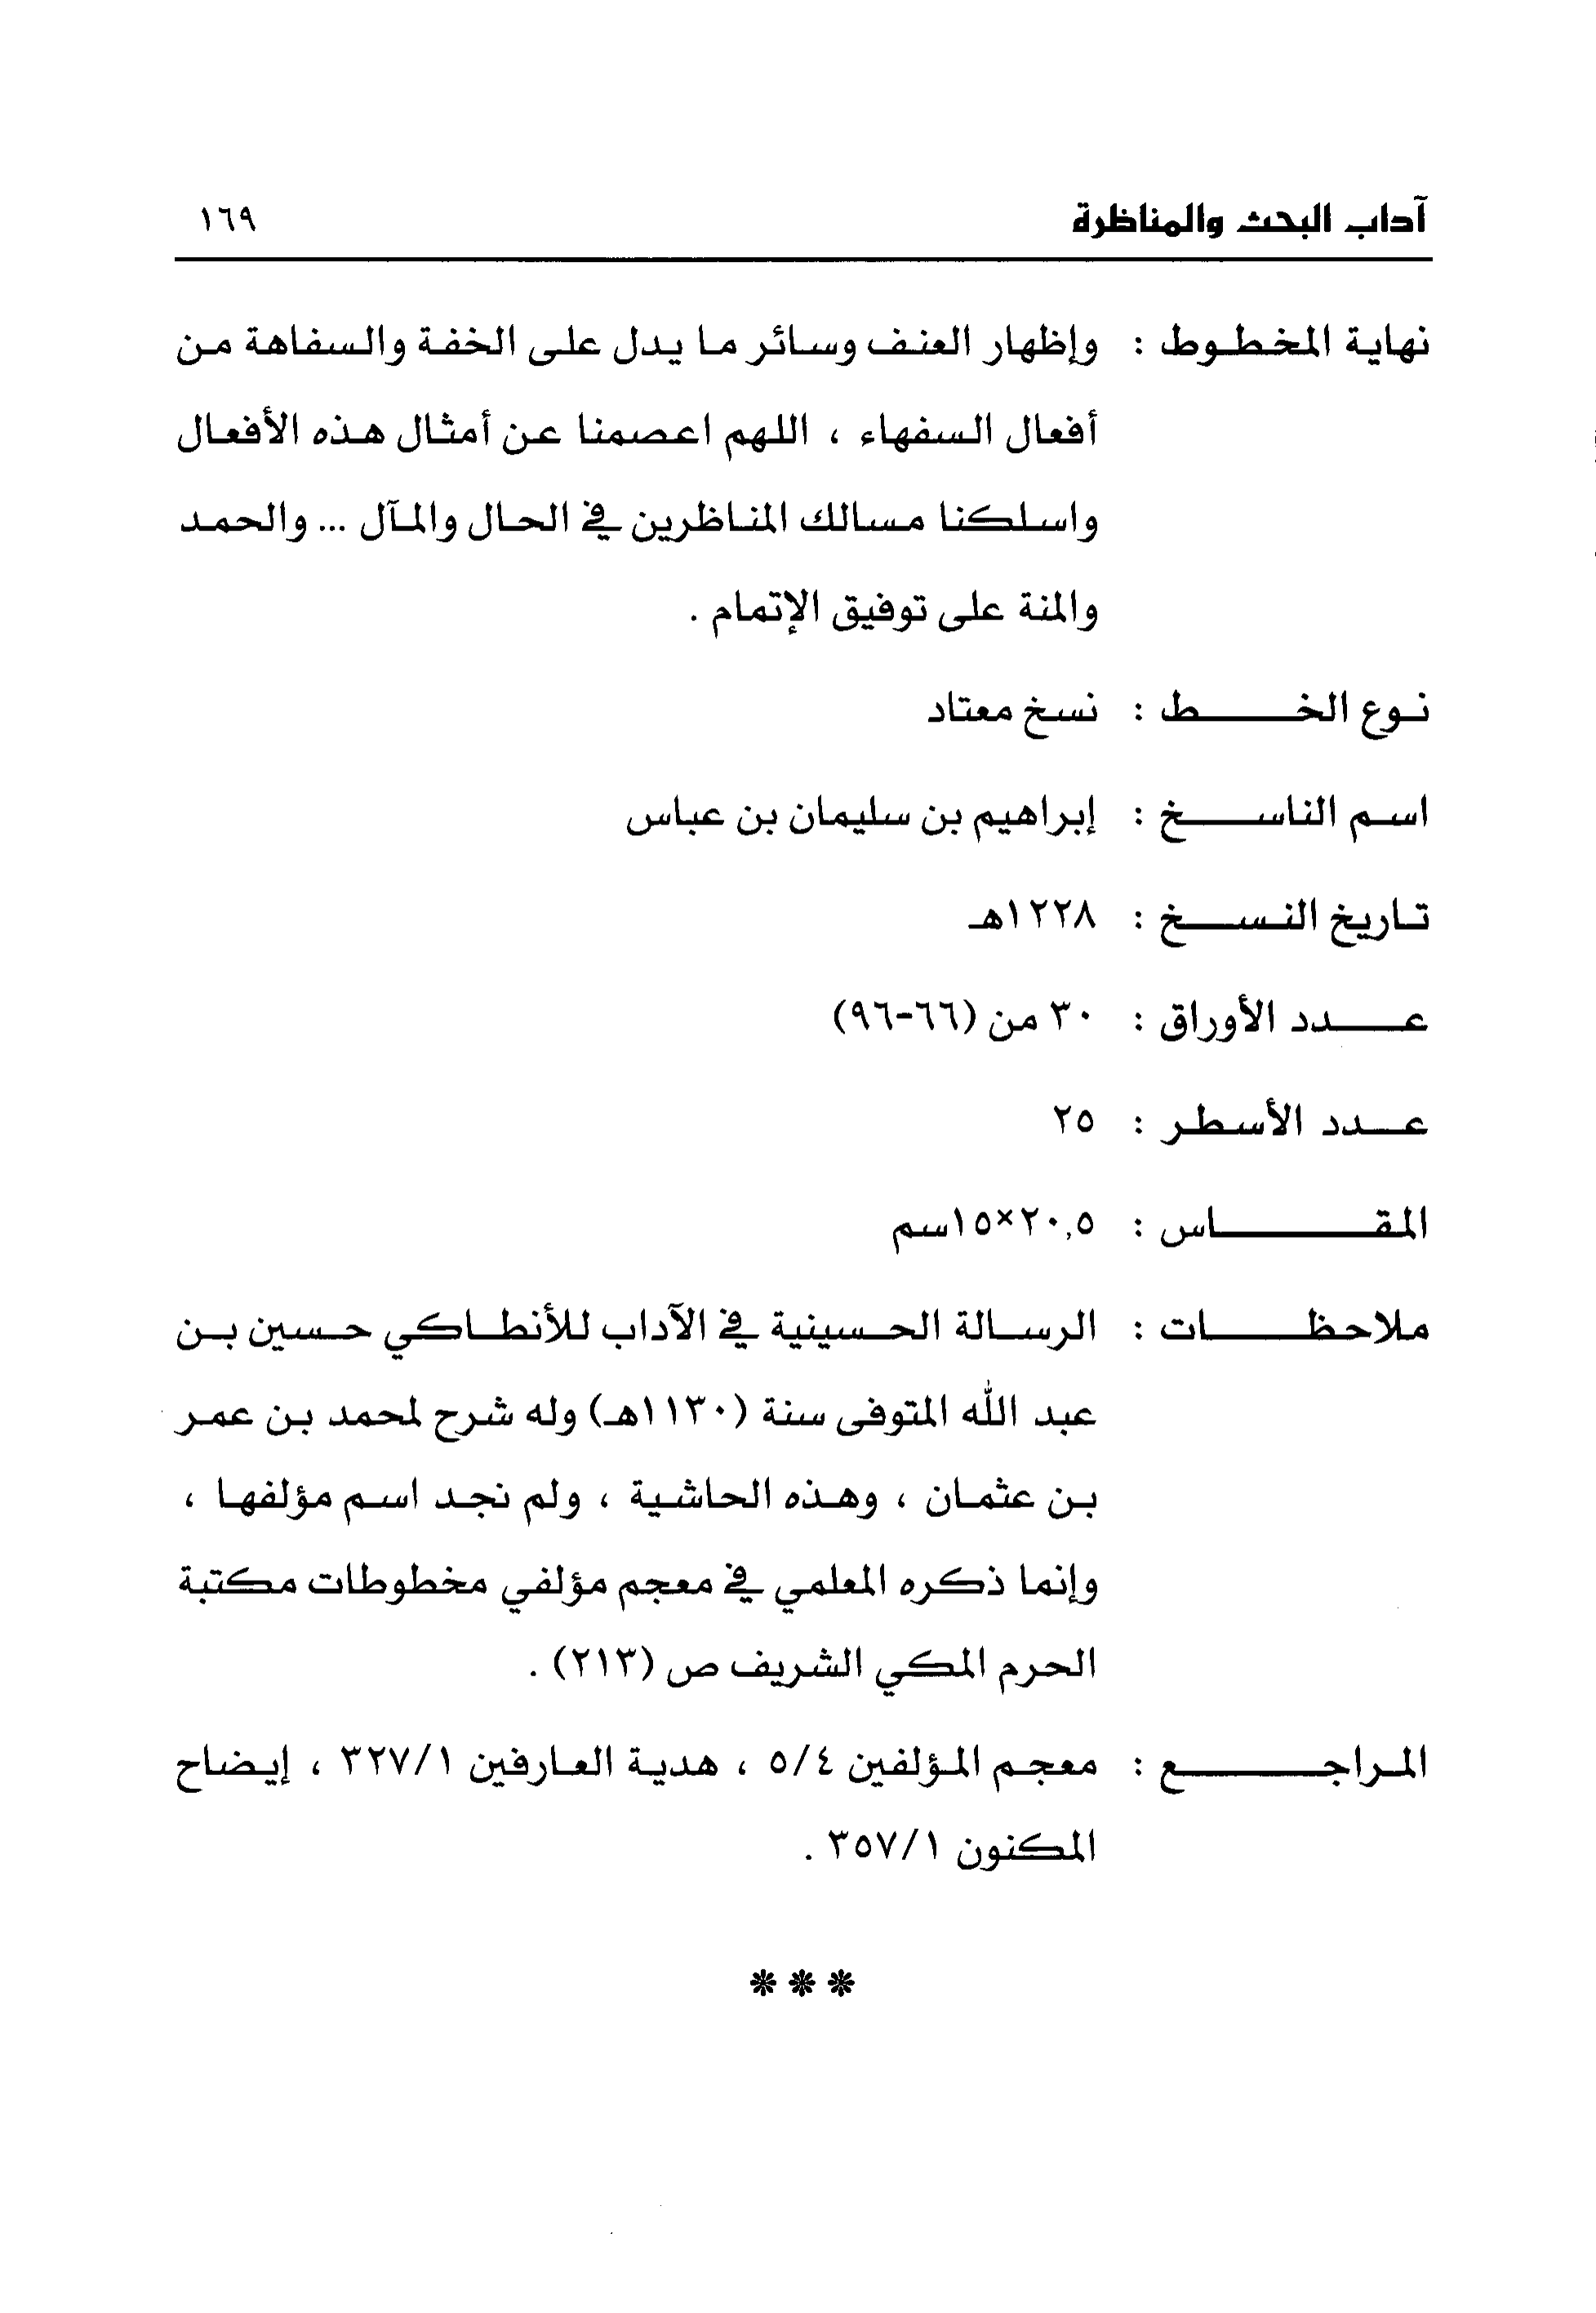 آداب البحث والمناظرة ١٦٩
نهاية المخطوط : وإظهار العنف وسائر ما يدل على الخفة والسفاهة من
أفعال السفهاء ، اللهم اعصمنا عن أمثال هذه الأفعال
واسلكنا مسالك المناظرين في الحال والمآل ... والحمد
والمنة على توفيق الإتمام .
نوع الخط : نسخ معتاد
اسم الناسخ : إبراهيم بن سليمان بن عباس
تاريخ النسخ : ١٢٢٨هـ
عدد الأوراق : ٣٠ من (٦٦-٩٦)
عدد الأسطر : ٢٥
المقاس : ٢٠,٥×١٥سم
ملاحظات : الرسالة الحسينية في الآداب للأنطاكي حسين بن
عبد الله المتوفى سنة (١١٣٠هـ) وله شرح لمحمد بن عمر
بن عثمان ، وهذه الحاشية ، ولم نجد اسم مؤلفها ،
وإنما ذكره المعلمي في معجم مؤلفي مخطوطات مكتبة
الحرم المكي الشريف ص (٢١٣) .
المراجع : معجم المؤلفين ٥/٤ ، هدية العارفين ٣٢٧/١ ، إيضاح
المكنون ٣٥٧/١ .
***